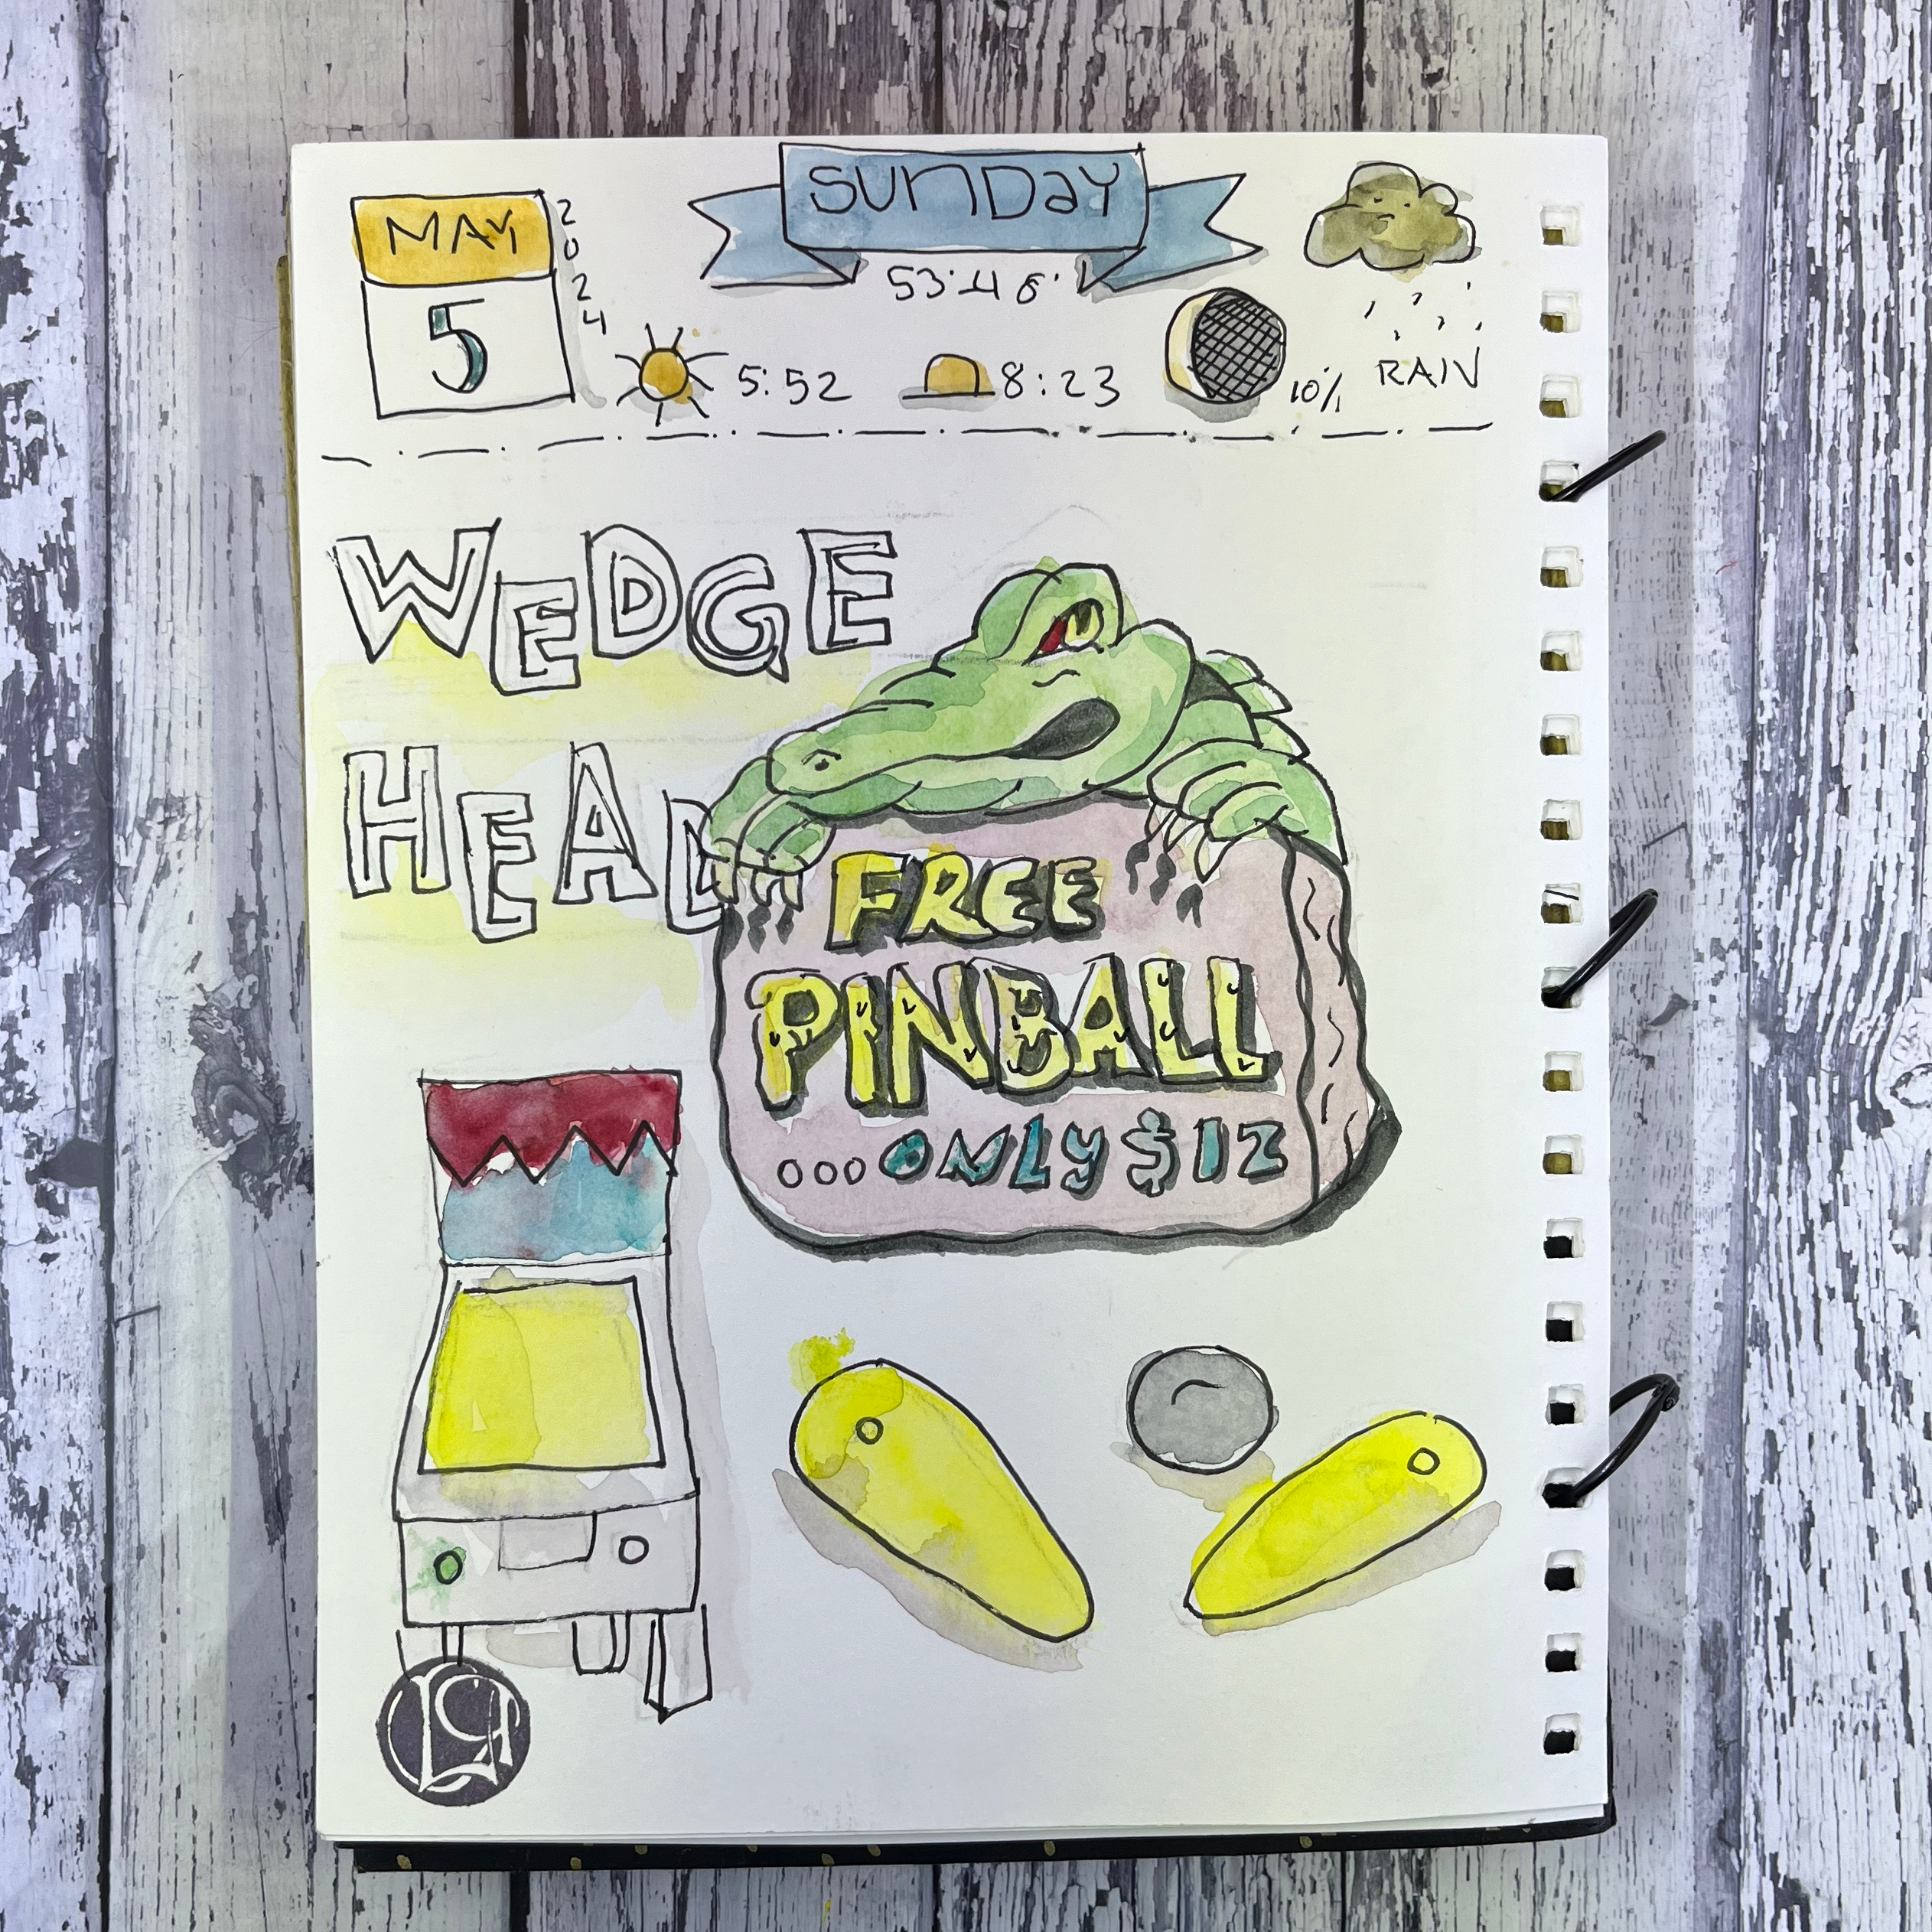 MAY
5
2024
SUNDAY
53°-48°
5:52
8:23
10%
RAIN
WEDGE
HEAD
FREE
PINBALL
...ONLY $12